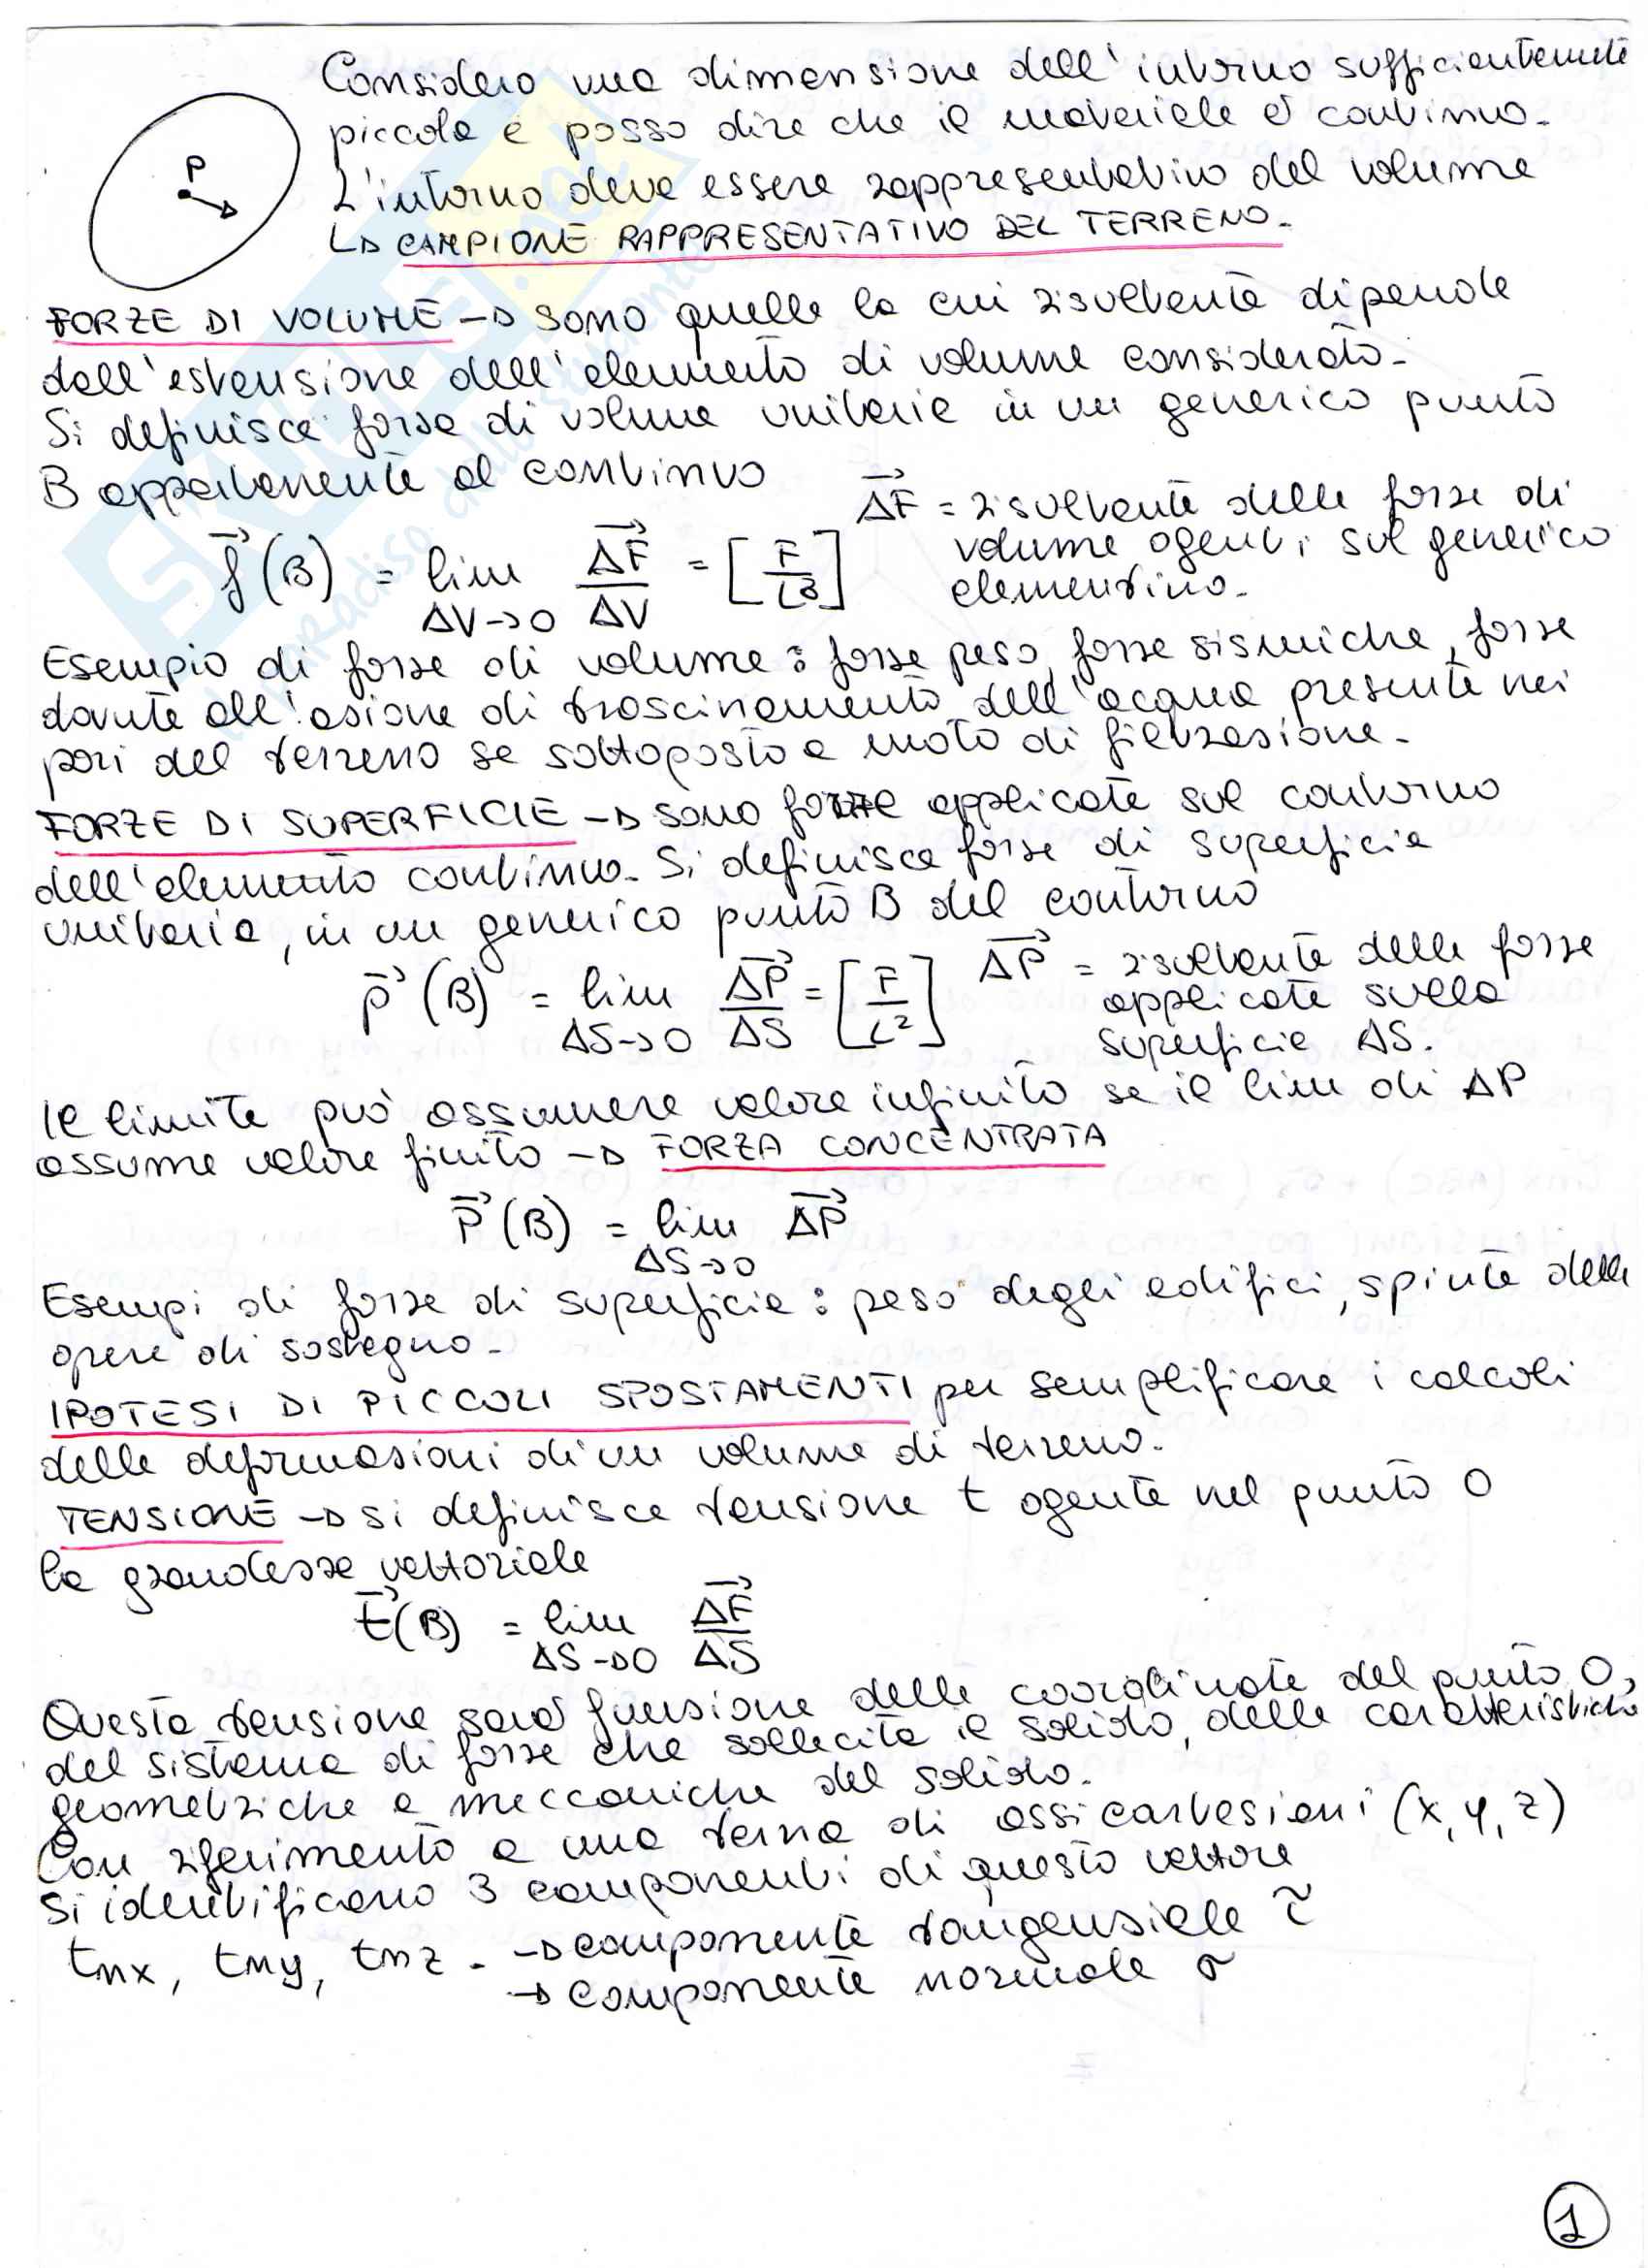 Considero una dimensione dell'intorno sufficientemente
piccola e posso dire che il materiale è continuo.
P
L'intorno deve essere rappresentativo del volume
↳ CAMPIONE RAPPRESENTATIVO DEL TERRENO.
FORZE DI VOLUME → sono quelle la cui risultante dipende
dall'estensione dell'elemento di volume considerato.
Si definisce forza di volume unitaria in un generico punto
B appartenente al continuo
ΔF⃗ = risultante delle forze di
volume agenti sul generico
elementino.
f⃗(B) = lim ΔV→0 ΔF⃗/ΔV = [F/L³]
Esempio di forze di volume: forze peso, forze sismiche, forze
dovute all'azione di trascinamento dell'acqua presente nei
pori del terreno se sottoposto a moto di filtrazione.
FORZE DI SUPERFICIE → sono forze applicate sul contorno
dell'elemento continuo. Si definisce forza di superficie
unitaria, in un generico punto B del contorno
p⃗(B) = lim ΔS→0 ΔP⃗/ΔS = [F/L²]
ΔP⃗ = risultante delle forze
applicate sulla
superficie ΔS.
Il limite può assumere valore infinito se il lim di ΔP
assume valore finito → FORZA CONCENTRATA
P⃗(B) = lim ΔS→0 ΔP⃗
Esempi di forze di superficie: peso degli edifici, spinte delle
opere di sostegno.
IPOTESI DI PICCOLI SPOSTAMENTI per semplificare i calcoli
delle deformazioni di un volume di terreno.
TENSIONE → si definisce tensione t agente nel punto O
la grandezza vettoriale
t⃗(B) = lim ΔS→0 ΔF⃗/ΔS
Questa tensione sarà funzione delle coordinate del punto O,
del sistema di forze che sollecita il solido, delle caratteristiche
geometriche e meccaniche del solido.
Con riferimento a una terna di assi cartesiani (x, y, z)
si identificano 3 componenti di questo vettore
tnx, tny, tnz. → componente tangenziale τ
→ componente normale σ
1
SKUOLA.net
il paradiso dello studente